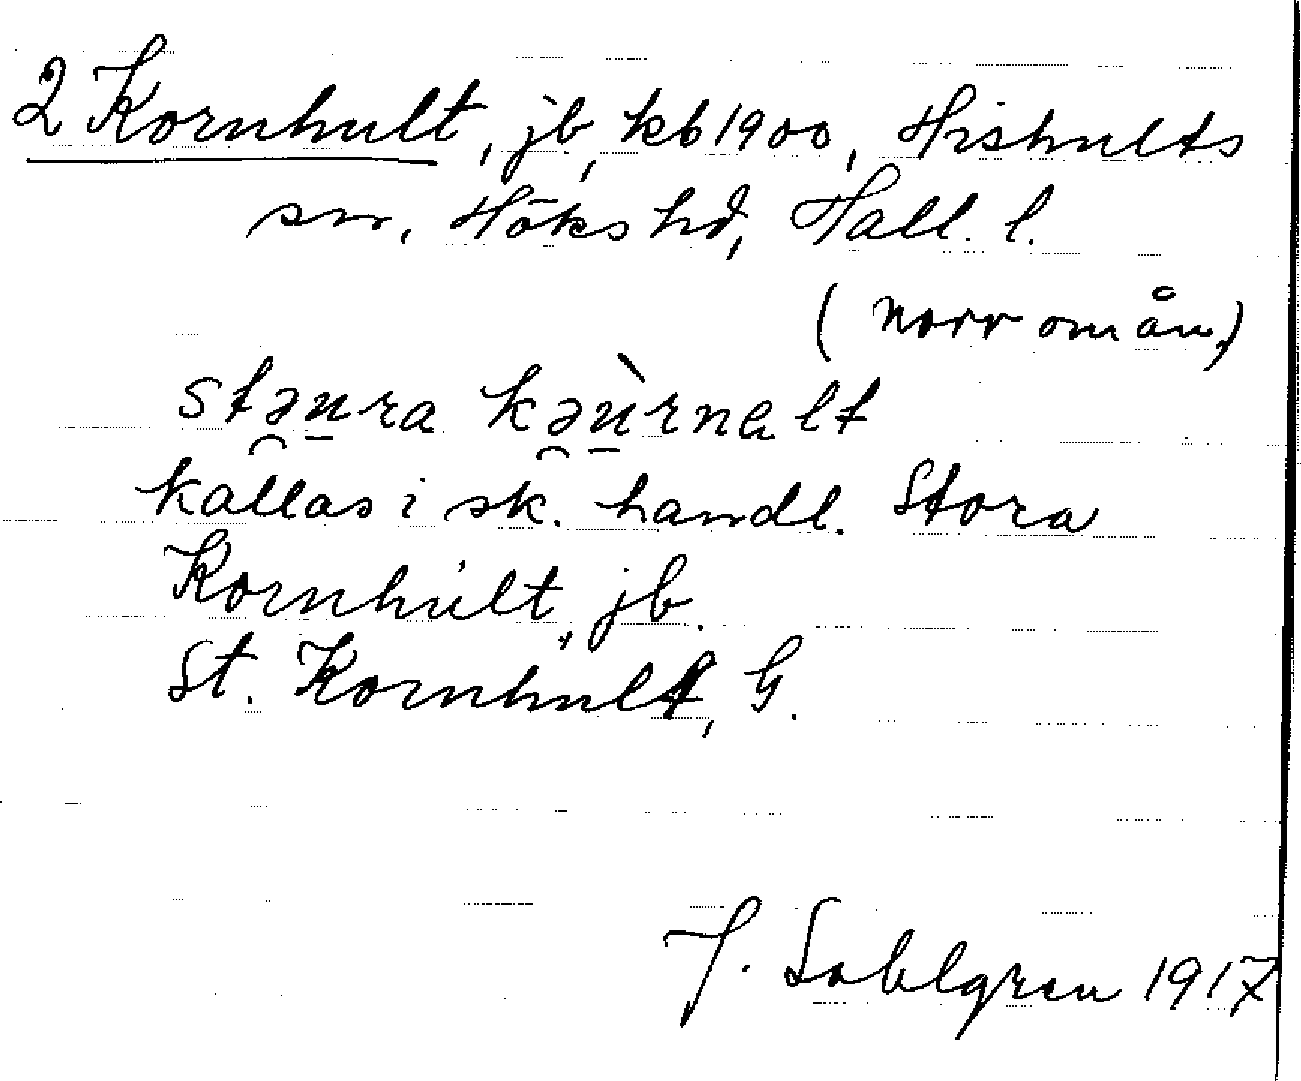 2 Kornhult, jb, kb 1900, Hishults
sn, Höks hd, Hall. l.
(norr om ån.)
stə̯u̱ra kə̯ù̱rnalt
kallas i sk. handl. Stora
Kornhult, jb.
St. Kornhult, G.
J. Sahlgren 1917